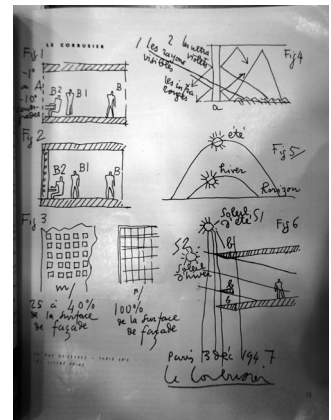 LE CORBUSIER
Fig 1
A
B2 B1 B
Fig 2
B2 B1 B
Fig 3
m
n
25 à 40%
de la surface
de façade
100%
de la surface
de façade
1 Les rayons
visibles
2 les ultra
violets
les infra
rouges
Fig 4
a
été
Fig 5
hiver
horizon
Soleil
d'été S1
Fig 6
S2
Soleil
d'hiver
b
Paris 3 déc 1947
Le Corbusier